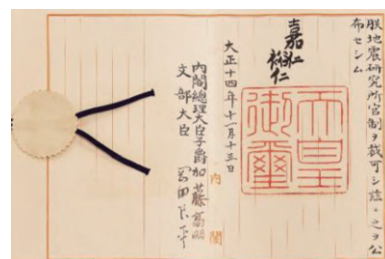 朕地震研究所官制ヲ裁可シ茲ニ之ヲ公
布セシム
嘉仁
裕仁
天皇
御璽
大正十四年十一月十三日
内閣
内閣總理大臣子爵加藤高明
文部大臣 岡田良平